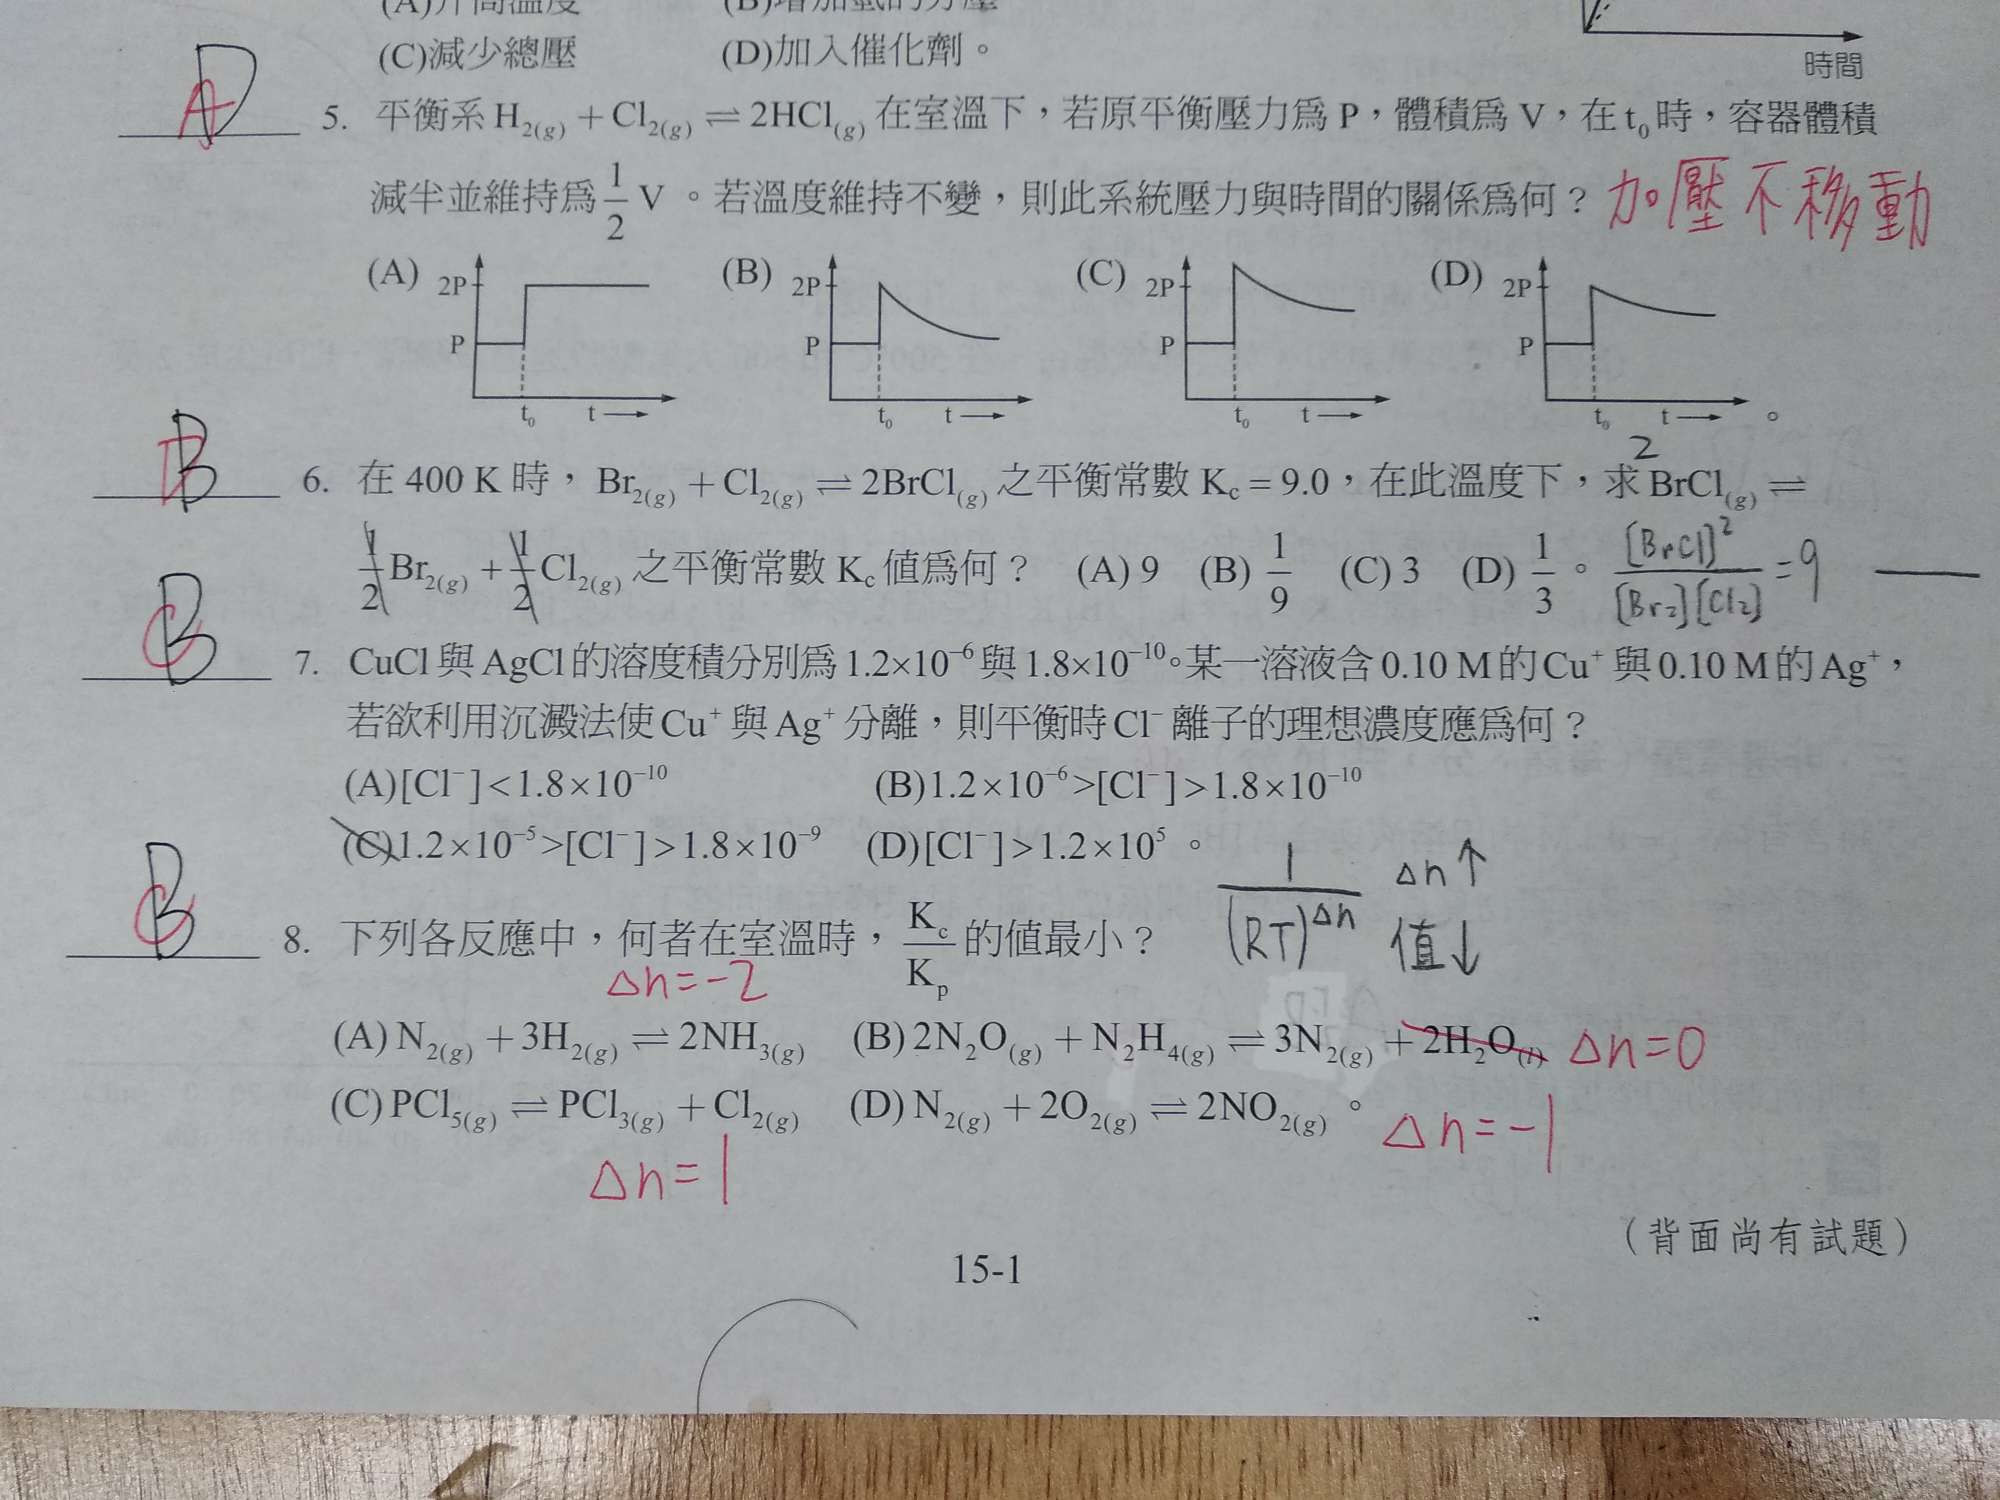 (A)升高溫度 (B)增加氫的分壓
(C)減少總壓 (D)加入催化劑。
時間
D A 5. 平衡系 H2(g) + Cl2(g) ⇌ 2HCl(g) 在室溫下，若原平衡壓力為 P，體積為 V，在 t0 時，容器體積
減半並維持為 1/2 V 。若溫度維持不變，則此系統壓力與時間的關係為何？ 加壓不移動
(A) 2P P t0 t (B) 2P P t0 t (C) 2P P t0 t (D) 2P P t0 t 。
B D 6. 在 400 K 時， Br2(g) + Cl2(g) ⇌ 2BrCl(g) 之平衡常數 Kc = 9.0，在此溫度下，求 2 BrCl(g) ⇌
1/2 Br2(g) + 1/2 Cl2(g) 之平衡常數 Kc 值為何？ (A) 9 (B) 1/9 (C) 3 (D) 1/3 。 [BrCl]²/[Br2][Cl2] = 9
B C 7. CuCl 與 AgCl 的溶度積分別為 1.2×10⁻⁶ 與 1.8×10⁻¹⁰。某一溶液含 0.10 M 的 Cu⁺ 與 0.10 M 的 Ag⁺，
若欲利用沉澱法使 Cu⁺ 與 Ag⁺ 分離，則平衡時 Cl⁻ 離子的理想濃度應為何？
(A)[Cl⁻]<1.8×10⁻¹⁰ (B)1.2×10⁻⁶>[Cl⁻]>1.8×10⁻¹⁰
(C)1.2×10⁻⁵>[Cl⁻]>1.8×10⁻⁹ (D)[Cl⁻]>1.2×10⁵ 。
B C 8. 下列各反應中，何者在室溫時， Kc/Kp 的值最小？ 1/(RT)^Δn Δn↑ 值↓
Δn=-2
(A) N2(g) + 3H2(g) ⇌ 2NH3(g) (B) 2N2O(g) + N2H4(g) ⇌ 3N2(g) + 2H2O(l) Δn=0
(C) PCl5(g) ⇌ PCl3(g) + Cl2(g) (D) N2(g) + 2O2(g) ⇌ 2NO2(g) 。 Δn=-1
Δn=1
（背面尚有試題）
15-1